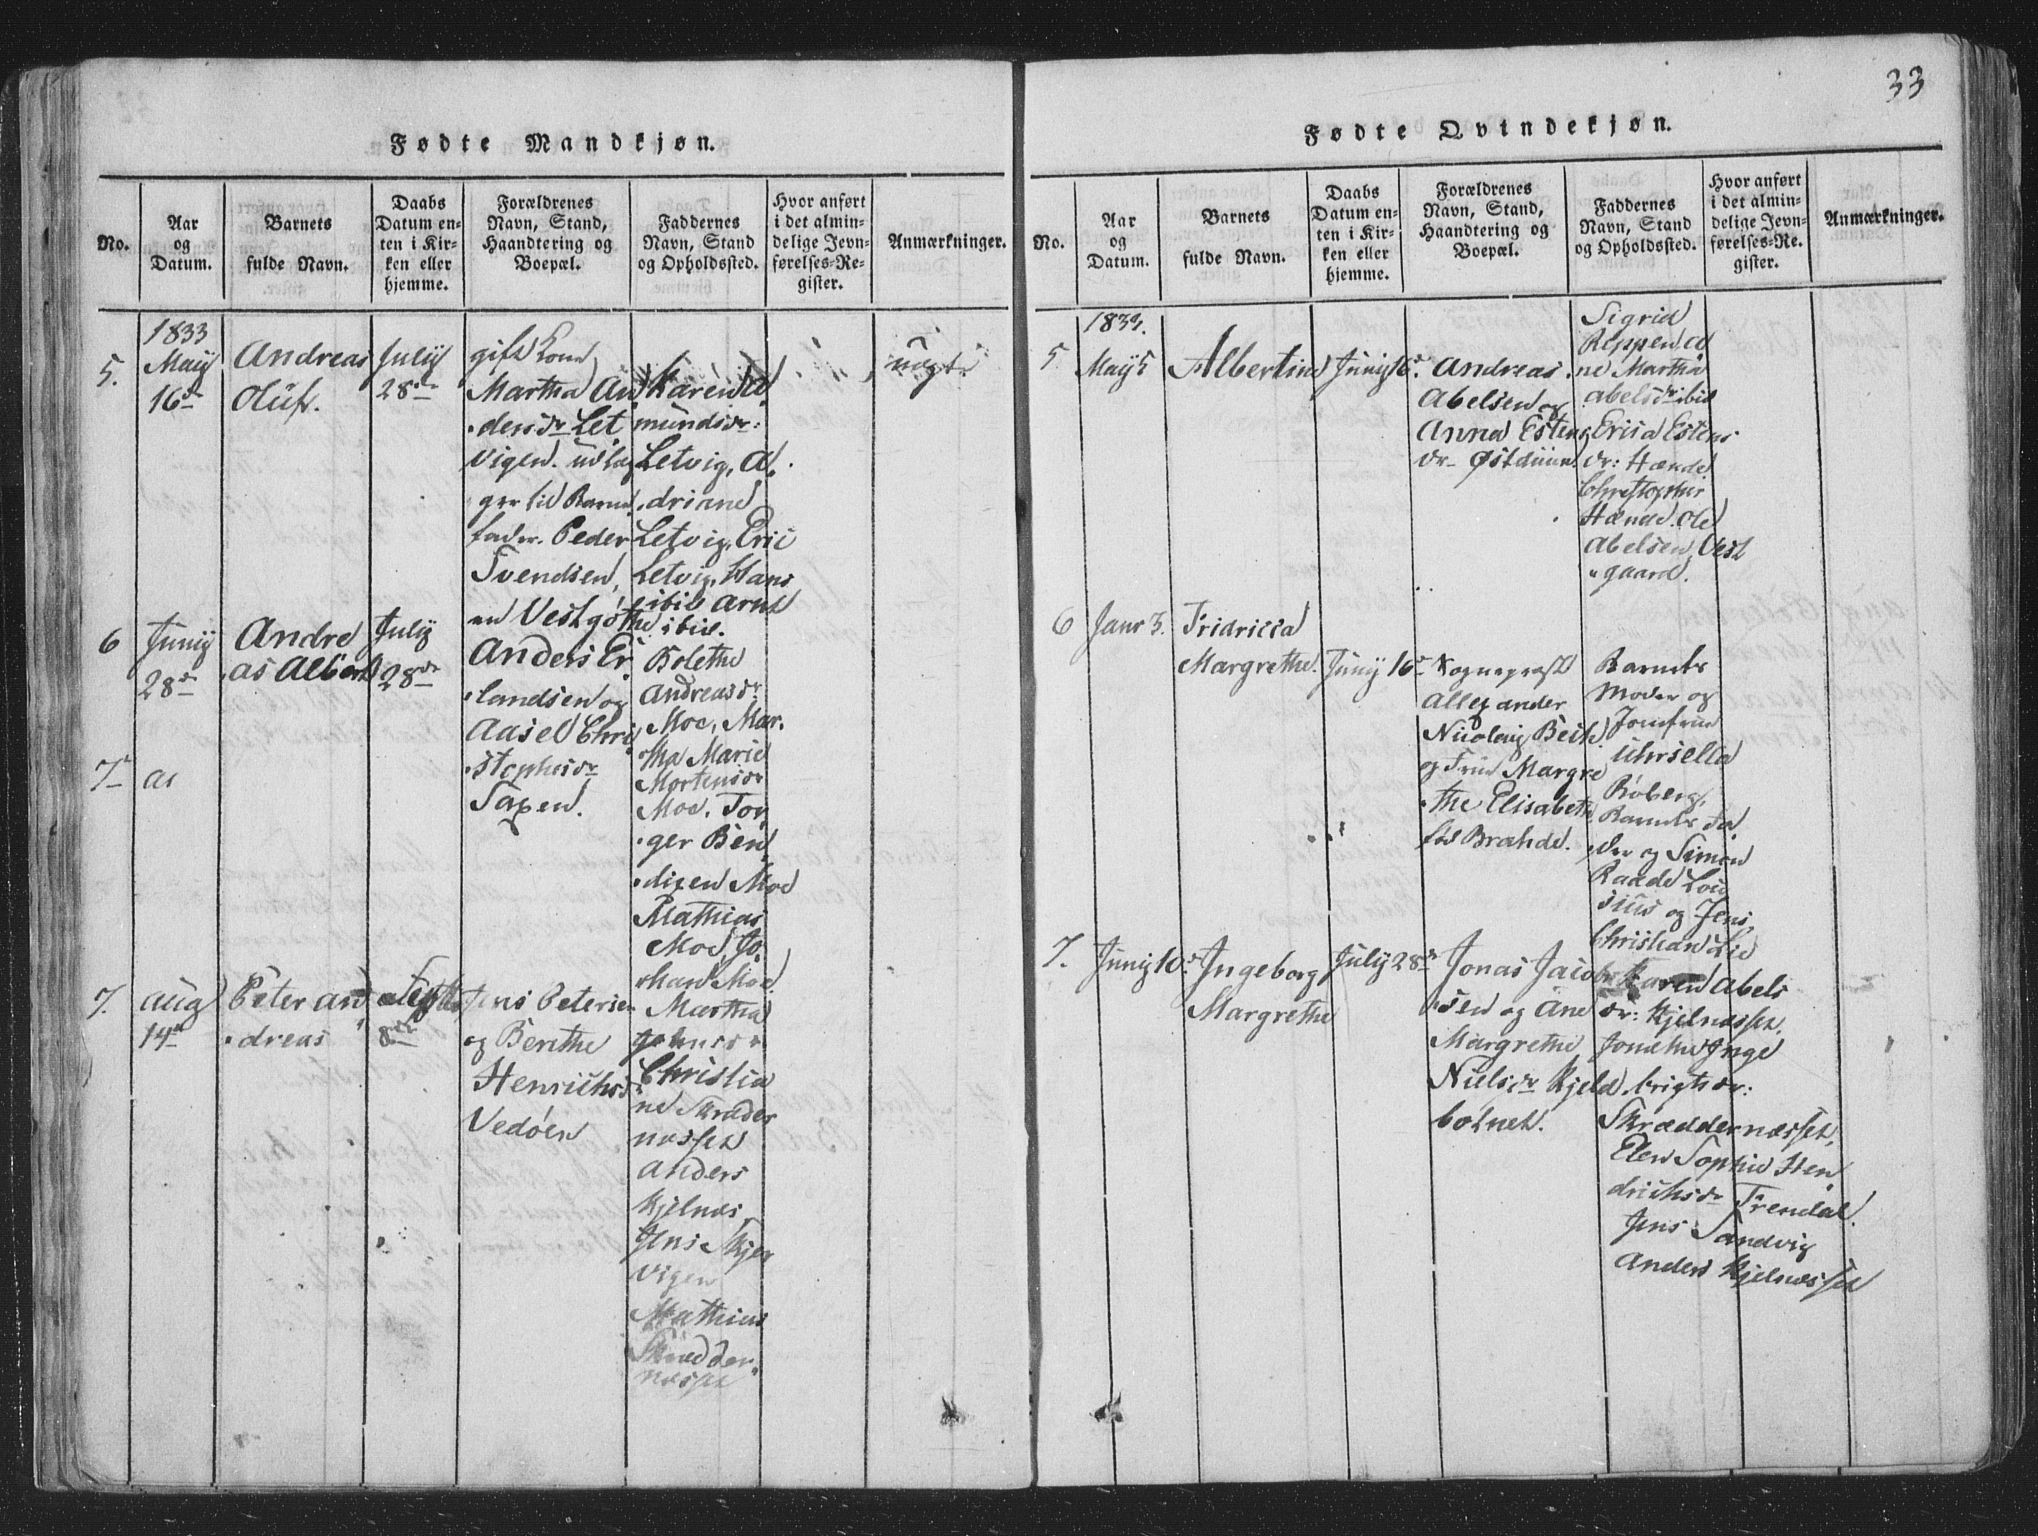 33
Fødte Mandkjøn.
No.
Aar
og
Datum.
Barnets
fulde Navn.
Daabs
Datum en-
ten i Kir-
ken eller
hjemme.
Forældrenes
Navn, Stand,
Haandtering og
Boepæl.
Faddernes
Navn, Stand
og Opholdssted.
Hvor anført
i det almin-
delige Jevn-
førelses-Re-
gister.
Anmærkninger.
5.
1833
May
16de
Andreas
Oluf.
July
28de
gift Kone
Martha An
dersdr Let
vigen. udlæg
ger til Barne
fader. Peder
Svendsen,
en Vestgöthe
Karen A
mundsdr:
Letvig, A
driane
Letvig, Eric
Letvig, Hans
ibid Arnt
ibid.
uægt.
6
Juny
28de
Andre
as Albert
July
28de
Anders Er
landsen og
Aasel Chri
stophersdr
Saxen.
Bolethe
Andreasdr
Moe, Mar
tha Marie
Mortensdr
Moe. Tor
ger Ben
dixen Moe
Mathias
Moe, Jo
han Moe
7
7.
Aug
14de
Peter An
dreas
Septbr
8de
Jens Petersen
og Berethe
Henrichsdr
Vedöen
Martha
Johnsdr
Christia
ne Skrader
næsset
Anders
Kjelnæs
Jens Skjer
vigen
Mathias
Skrædder
næsset
Fødte Qvindekjøn.
No.
Aar
og
Datum.
Barnets
fulde Navn.
Daabs
Datum en-
ten i Kir-
ken eller
hjemme.
Forældrenes
Navn, Stand,
Haandtering og
Boepæl.
Faddernes
Navn, Stand
og Opholdssted.
Hvor anført
i det almin-
delige Jevn-
førelses-Re-
gister.
Anmærkninger.
5
1833.
May 5
Albertine
Juny 16de
Andreas
Abelsen og
Anna Estens
dr Østduun.
Sigrid
Reppen A
ne Martha
Abelsdr ibid
Erica Estens
dr: Hænde
Christopher
Hænde. Ole
Abelsen Vest
gaard.
6
Janr 3.
Fridricca
Margrethe.
Juny 16de
Sognepræst
Allexander
Nicolay
og Frue Margre
the Elisabeth
fød Brahde.
Barnets
Moder og
Jomfrue
Uhrsella
Röberg,
Barnets Fa
der og Simon
Raade
og Jens
Christian Lie
7.
Juny 10de
Ingeborg
Margrethe
July 28de
Jonas Jacob
sen og Ane
Margrethe
Nielsdr Kjeld
botnet.
Karen Abels
dr: Kjelnæsset.
Jonethe Inge
brigtsdr:
Skræddernæsset,
Elen Sophie Hen
drichsdr Frendal.
Jens Sandvig
Anders Kjelnæsset